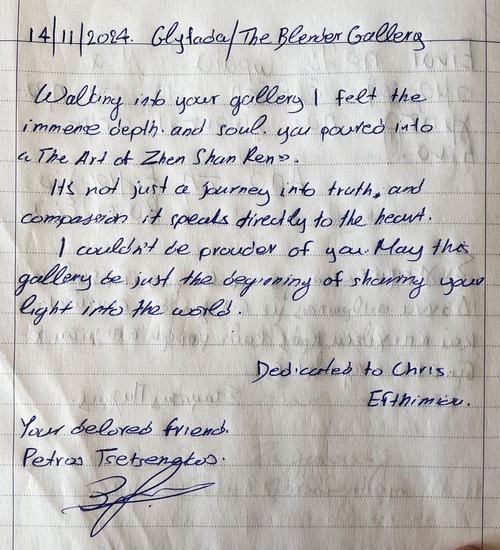 14/11/2024. Glyfada/The Blender Gallery
Walking into your gallery I felt the
immense depth. and soul. you poured into
«The Art of Zhen Shan Ren».
It's not just a journey into truth, and
compassion it speaks directly to the heart.
I couldn't be prouder of you. May this
gallery be just the beginning of sharing your
light into the world.
Dedicated to Chris
Your beloved friend.
Petros